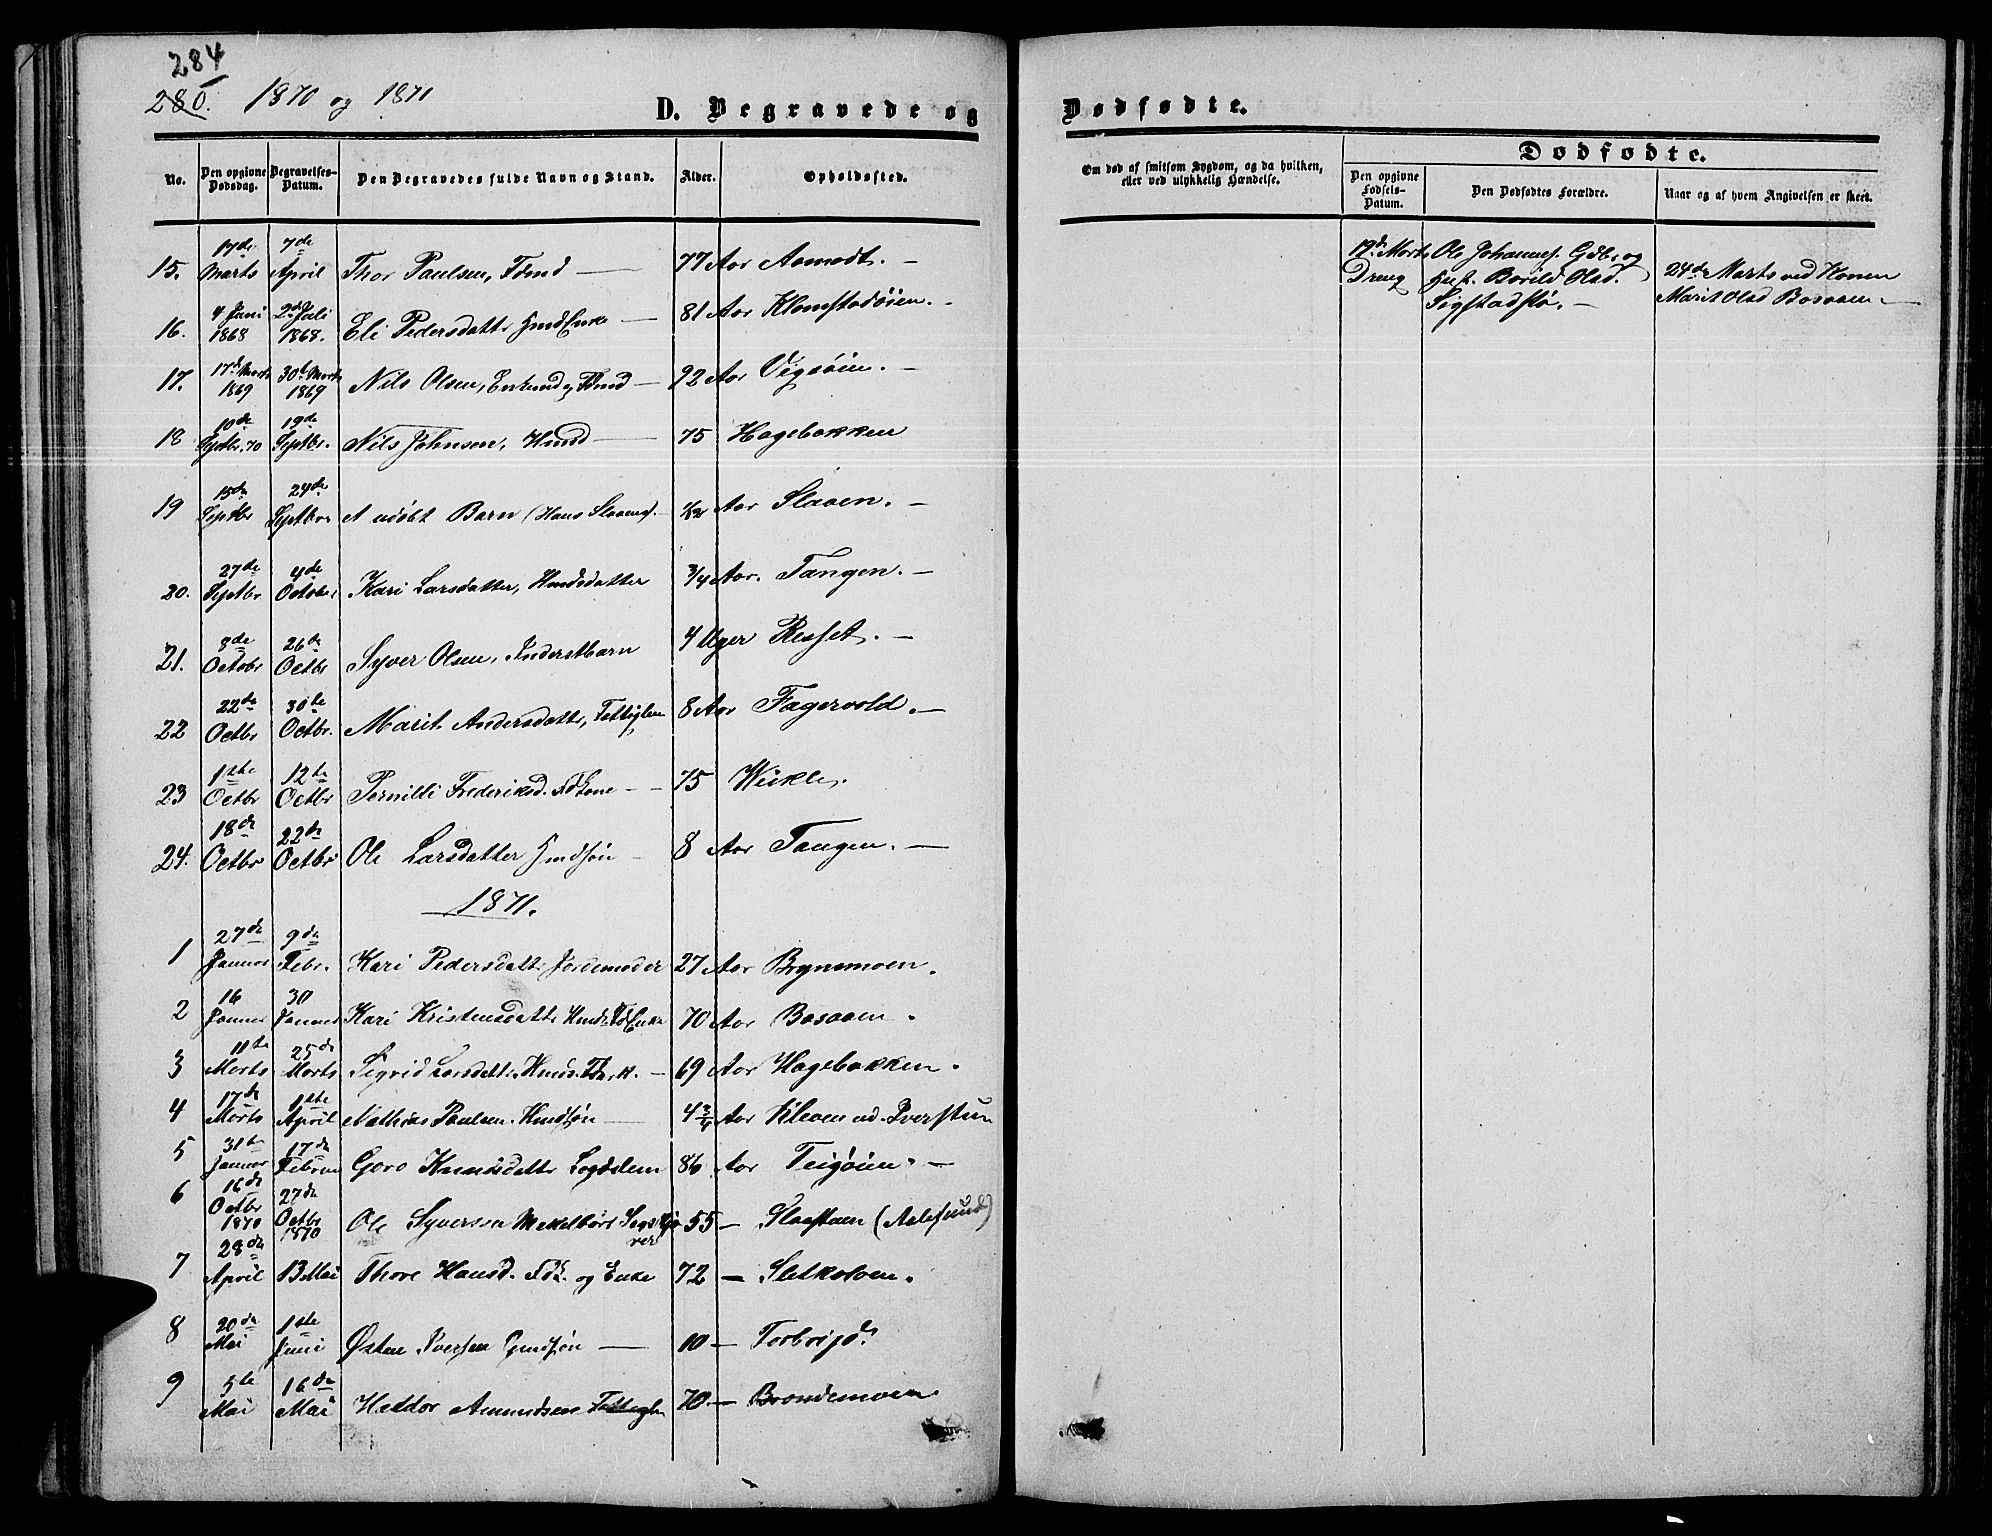 284
280. 1870 og 1871
D. Begravede og Dødfødte.
No. Den opgivne Dødsdag. Begravelses-Datum. Den Begravedes fulde Navn og Stand. Alder. Opholdssted.
Om død af smitsom Sygdom, og da hvilken, eller ved ulykkelig Hændelse.
Dødfødte.
Den opgivne Fødsels-Datum. Den Dødfødtes Forældre. Naar og af hvem Angivelsen er skeet.
15. 17de Marts 7de April Thor Paulsen, Fdmd — 77 Aar Aamodt. —
16. 4 Juni 1868 2den Juli 1868. Eli Pedersdatt. Enke — 81 Aar Klomstadøien. —
17. 17de Marts 1869 30te Marts 1869 Nils Olsen, — 92 Aar Vigeøien. —
18 10de Septbr. 70 19de Septbr. Nils Johnsen, Hmd — 75 Hagebakken
19 15de Septbr 24de Septbr et udøbt Barn (Hans Slaaens). Aar Slaaen. —
20. 27de Septbr 4de Octobr Kari Larsdatter, Hmdsdatter 3/4 Aar. Tangen. —
21. 8de Octobr 26de Octbr Syver Olsen, Inderstbarn 4 Uger Resset. —
22 22de Octbr 30te Octbr. Marit Andersdatt., Fattiglem 8 Aar Fagervold. —
23 1ste Octbr 12te Octbr Pernille Frederiksd. Fdkone — 75 Weikle.
24. 18de Octbr 22de Octbr Ole Larsdatter Hmdsøn — 8 Aar Tangen. —
1871.
1 27de Januar 9de Febr. Kari Pedersdatt. Jordemoder 27 Aar Brynsmoen.
2 16 Januar 30 Januar Kari Kristensdatt. Enke 70 Aar Bosaaen.
3 11te Marts 25de Marts Sigrid Larsdatt. — 69 Aar Hagebakken.
4 17de Marts 1ste April Mathias Paulsen. Hmdsøn — 4 3/4 Aar Kleven
5 31te Januar 17de Februar Goro Knudsdatt. Logdslem 86 Aar Teigøien. —
6 16de Octbr 1870 27de Octbr 1870 Ole Syversen 55 — Slaastuen (Aalesund)
7 28de April 13 Mai Thore Hansd. Fdk. og Enke 72 — Sletkolven.
8 20de Mai 1ste Juni Østen Iversen Gmdsøn — 10 — Forbrigd.
9 5te Mai 16de Mai Haldor Amundsen Fattiglm 70 — Brandemoen
19de Marts Dreng
Ole Johannes. Gdbr. og Hust. Borild Olsd. Sigstadslø. —
24de Marts ved Konen Marit Olsd Bosaaen —